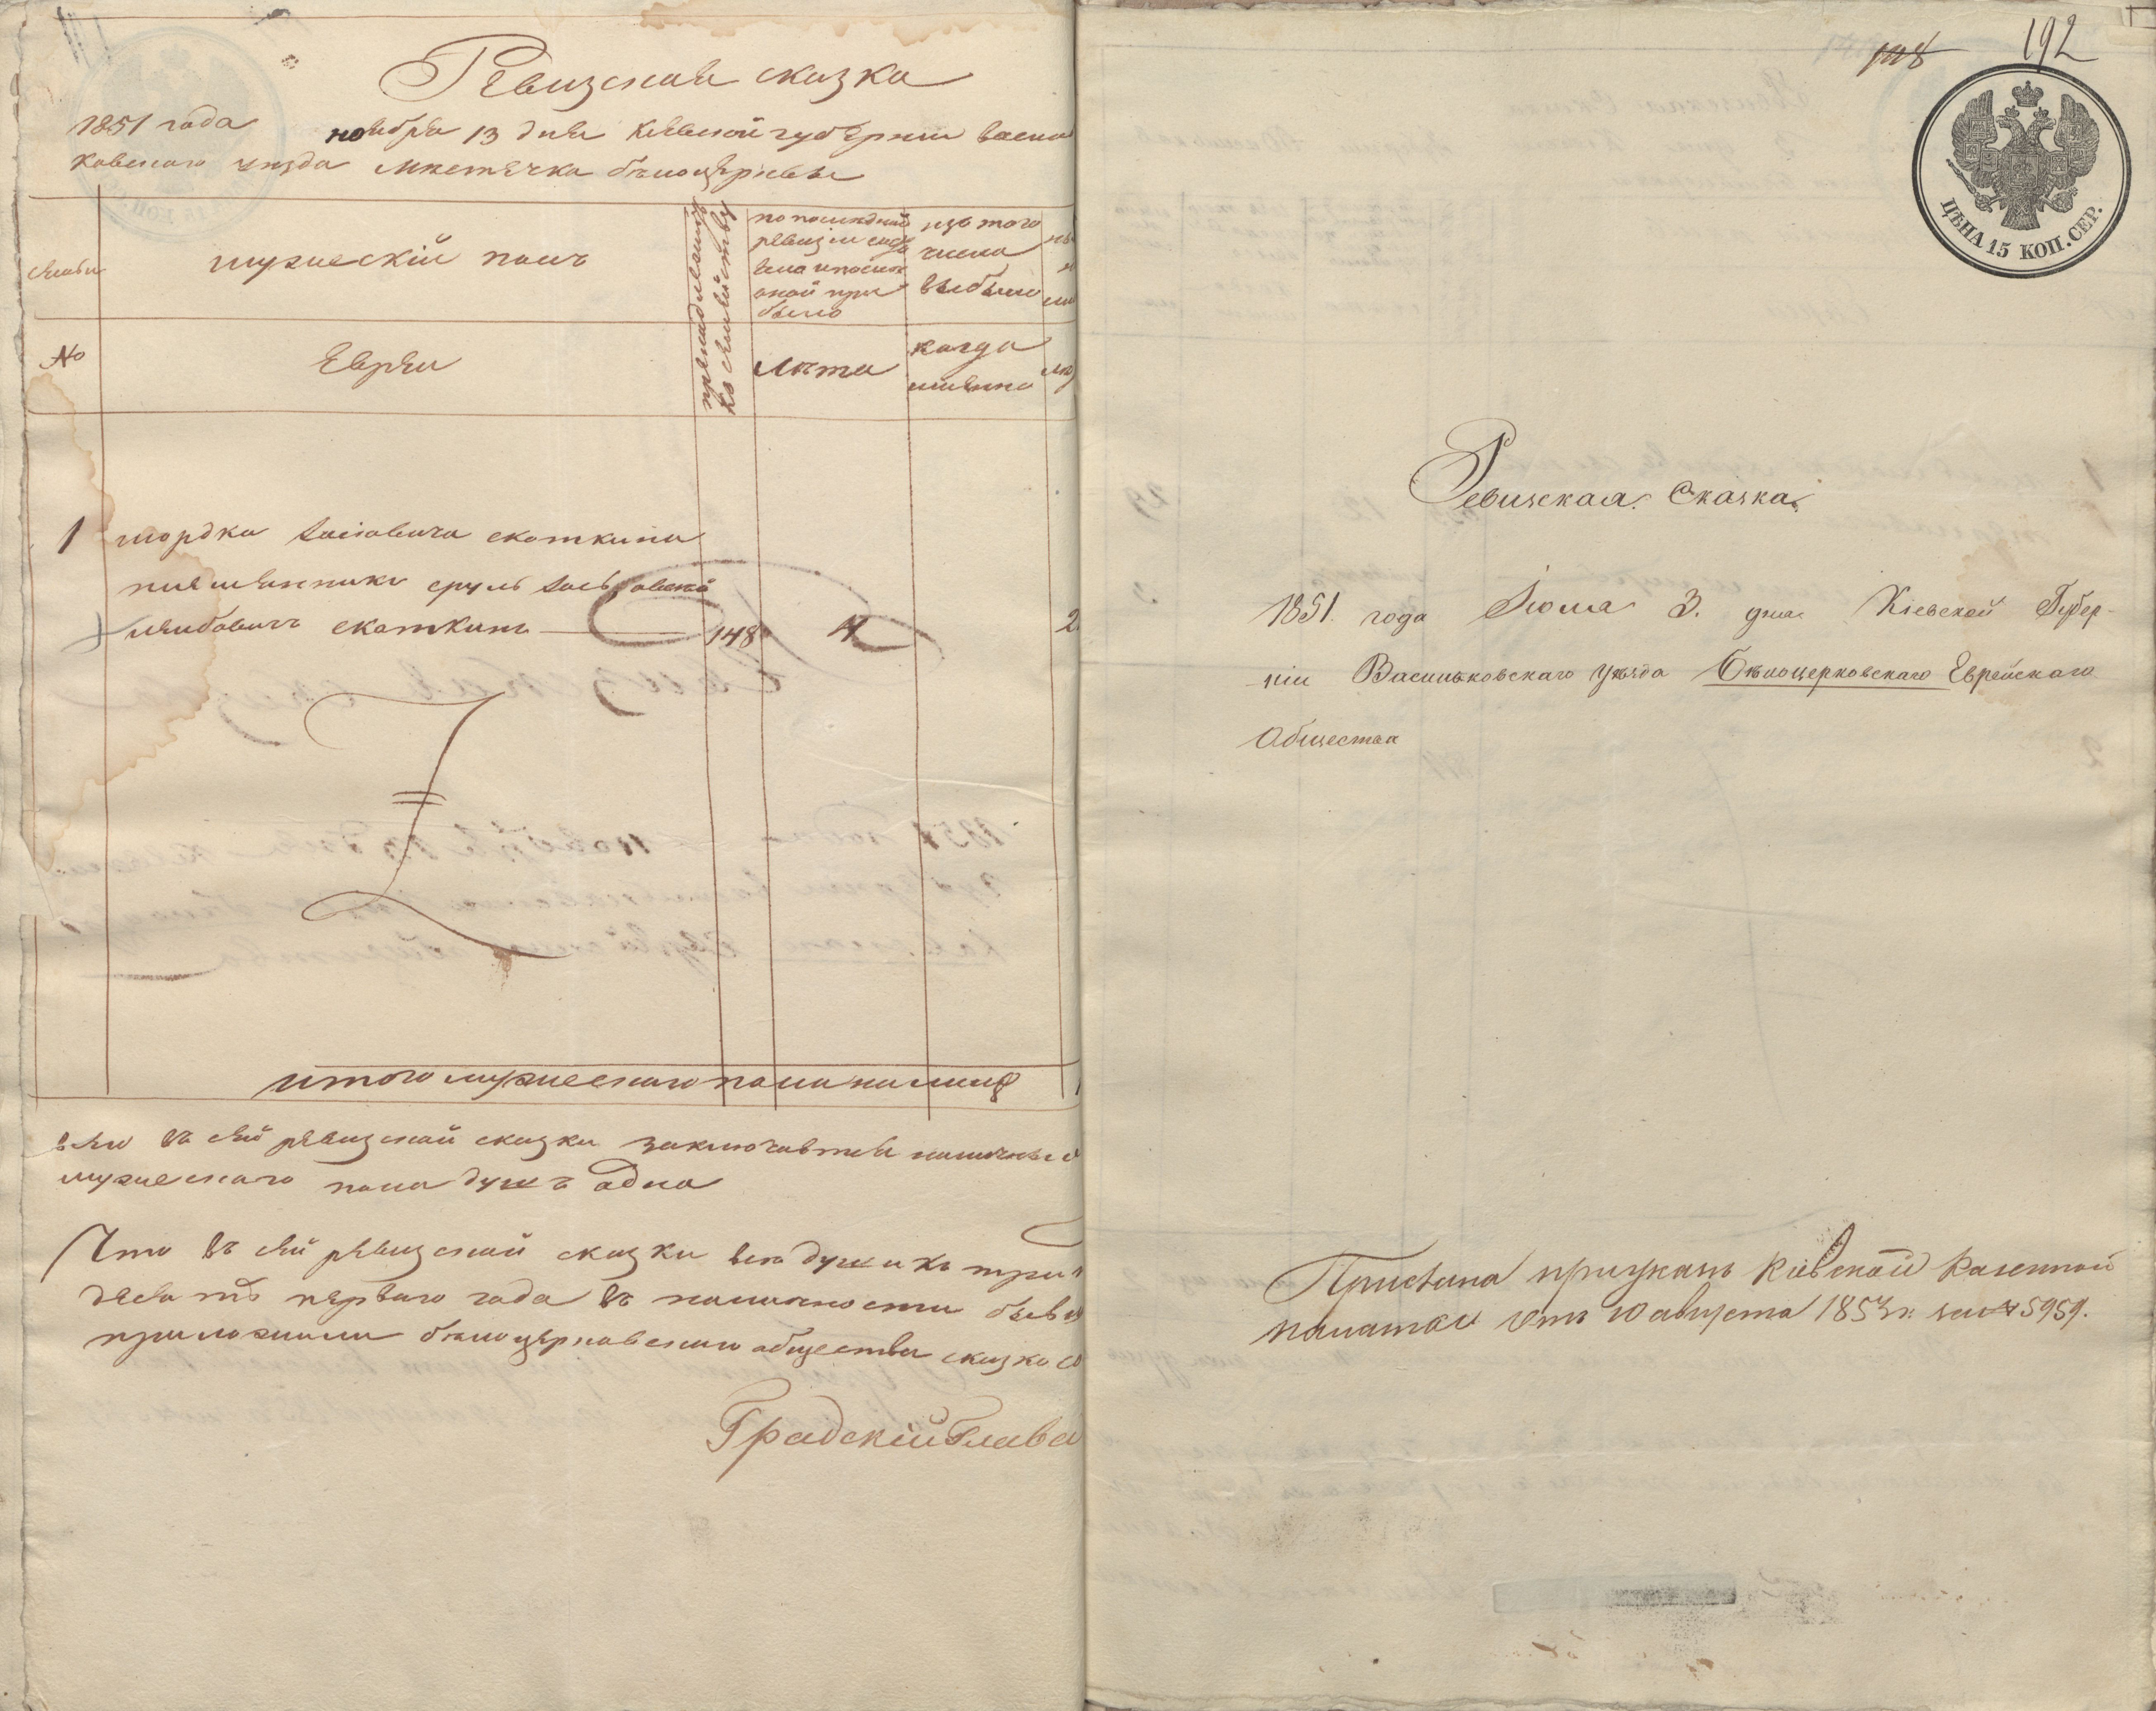 Ревизская сказка
1851 года ноября 13 дня Киевской губернии Василь
ковского уезда местечка белоцеркве
семьи
мужескій полъ
принадлежитъ
къ семейству
по последней
ревизіи состо
яло и после
оной при
было
изъ того
числа
выбыло
№
Евреи
лета
когда
именно
1 мордка скоткина
племянникъ сруль
лейбовичъ скоткинъ 148 4 2
итого мужескаго пола на лицо 1
всего въ сей ревизской сказки заключается наличных
мужескаго пола душъ одна
Что въ сей ревизской сказки все души къ
десятъ первого года въ наличности
приложили белоцерковского общества сказка со
Градскій Глава
108 192
ЦѢНА 15 КОП. СЕР.
Ревизская Сказка
1851 года Іюля 3. дня Кіевской Губер-
ніи Васильковскаго Уѣзда Бѣлоцерковскаго Еврейскаго
Общества
Прислана приуказъ Киевской Казенной
палаты отъ 10 августа 1853 г. за № 5959.